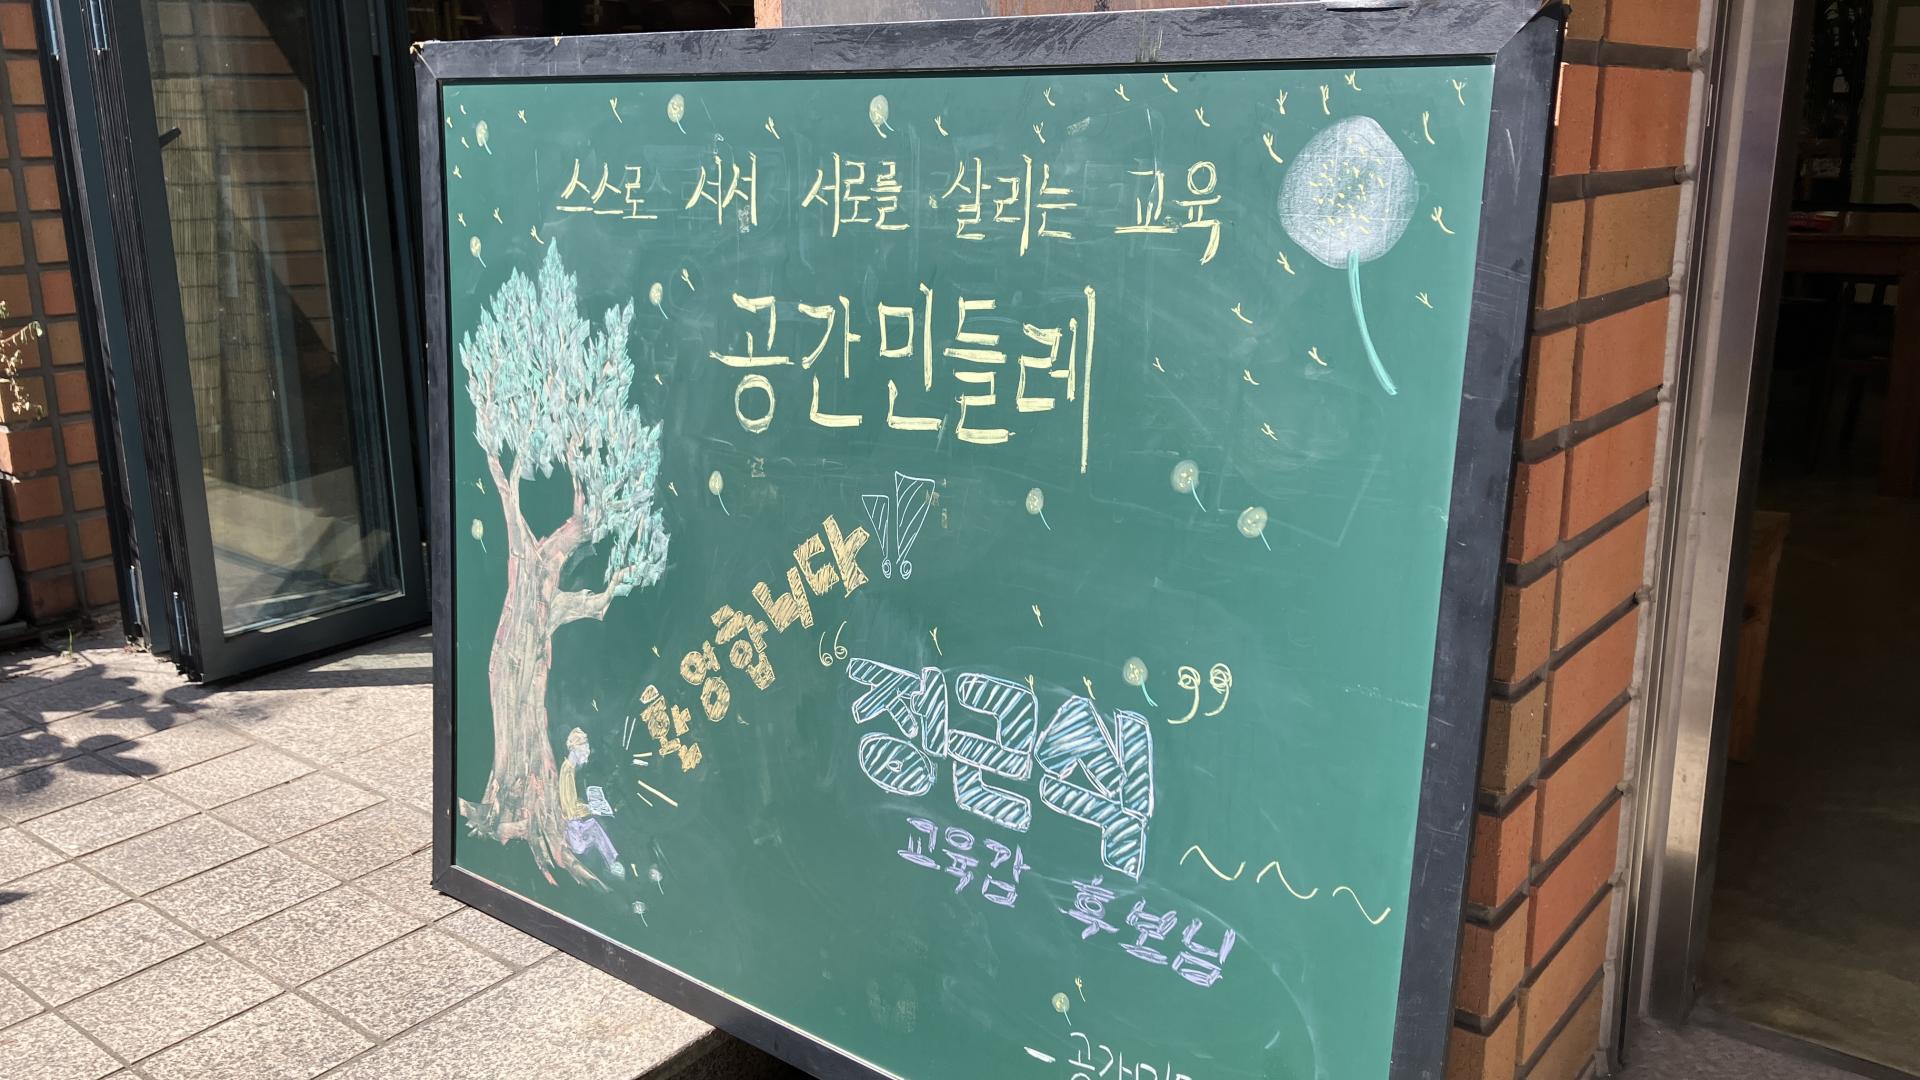 스스로 서서 서로를 살리는 교육
공간민들레
환영합니다!!
“정근식”
교육감 후보님~~~
- 공간민들